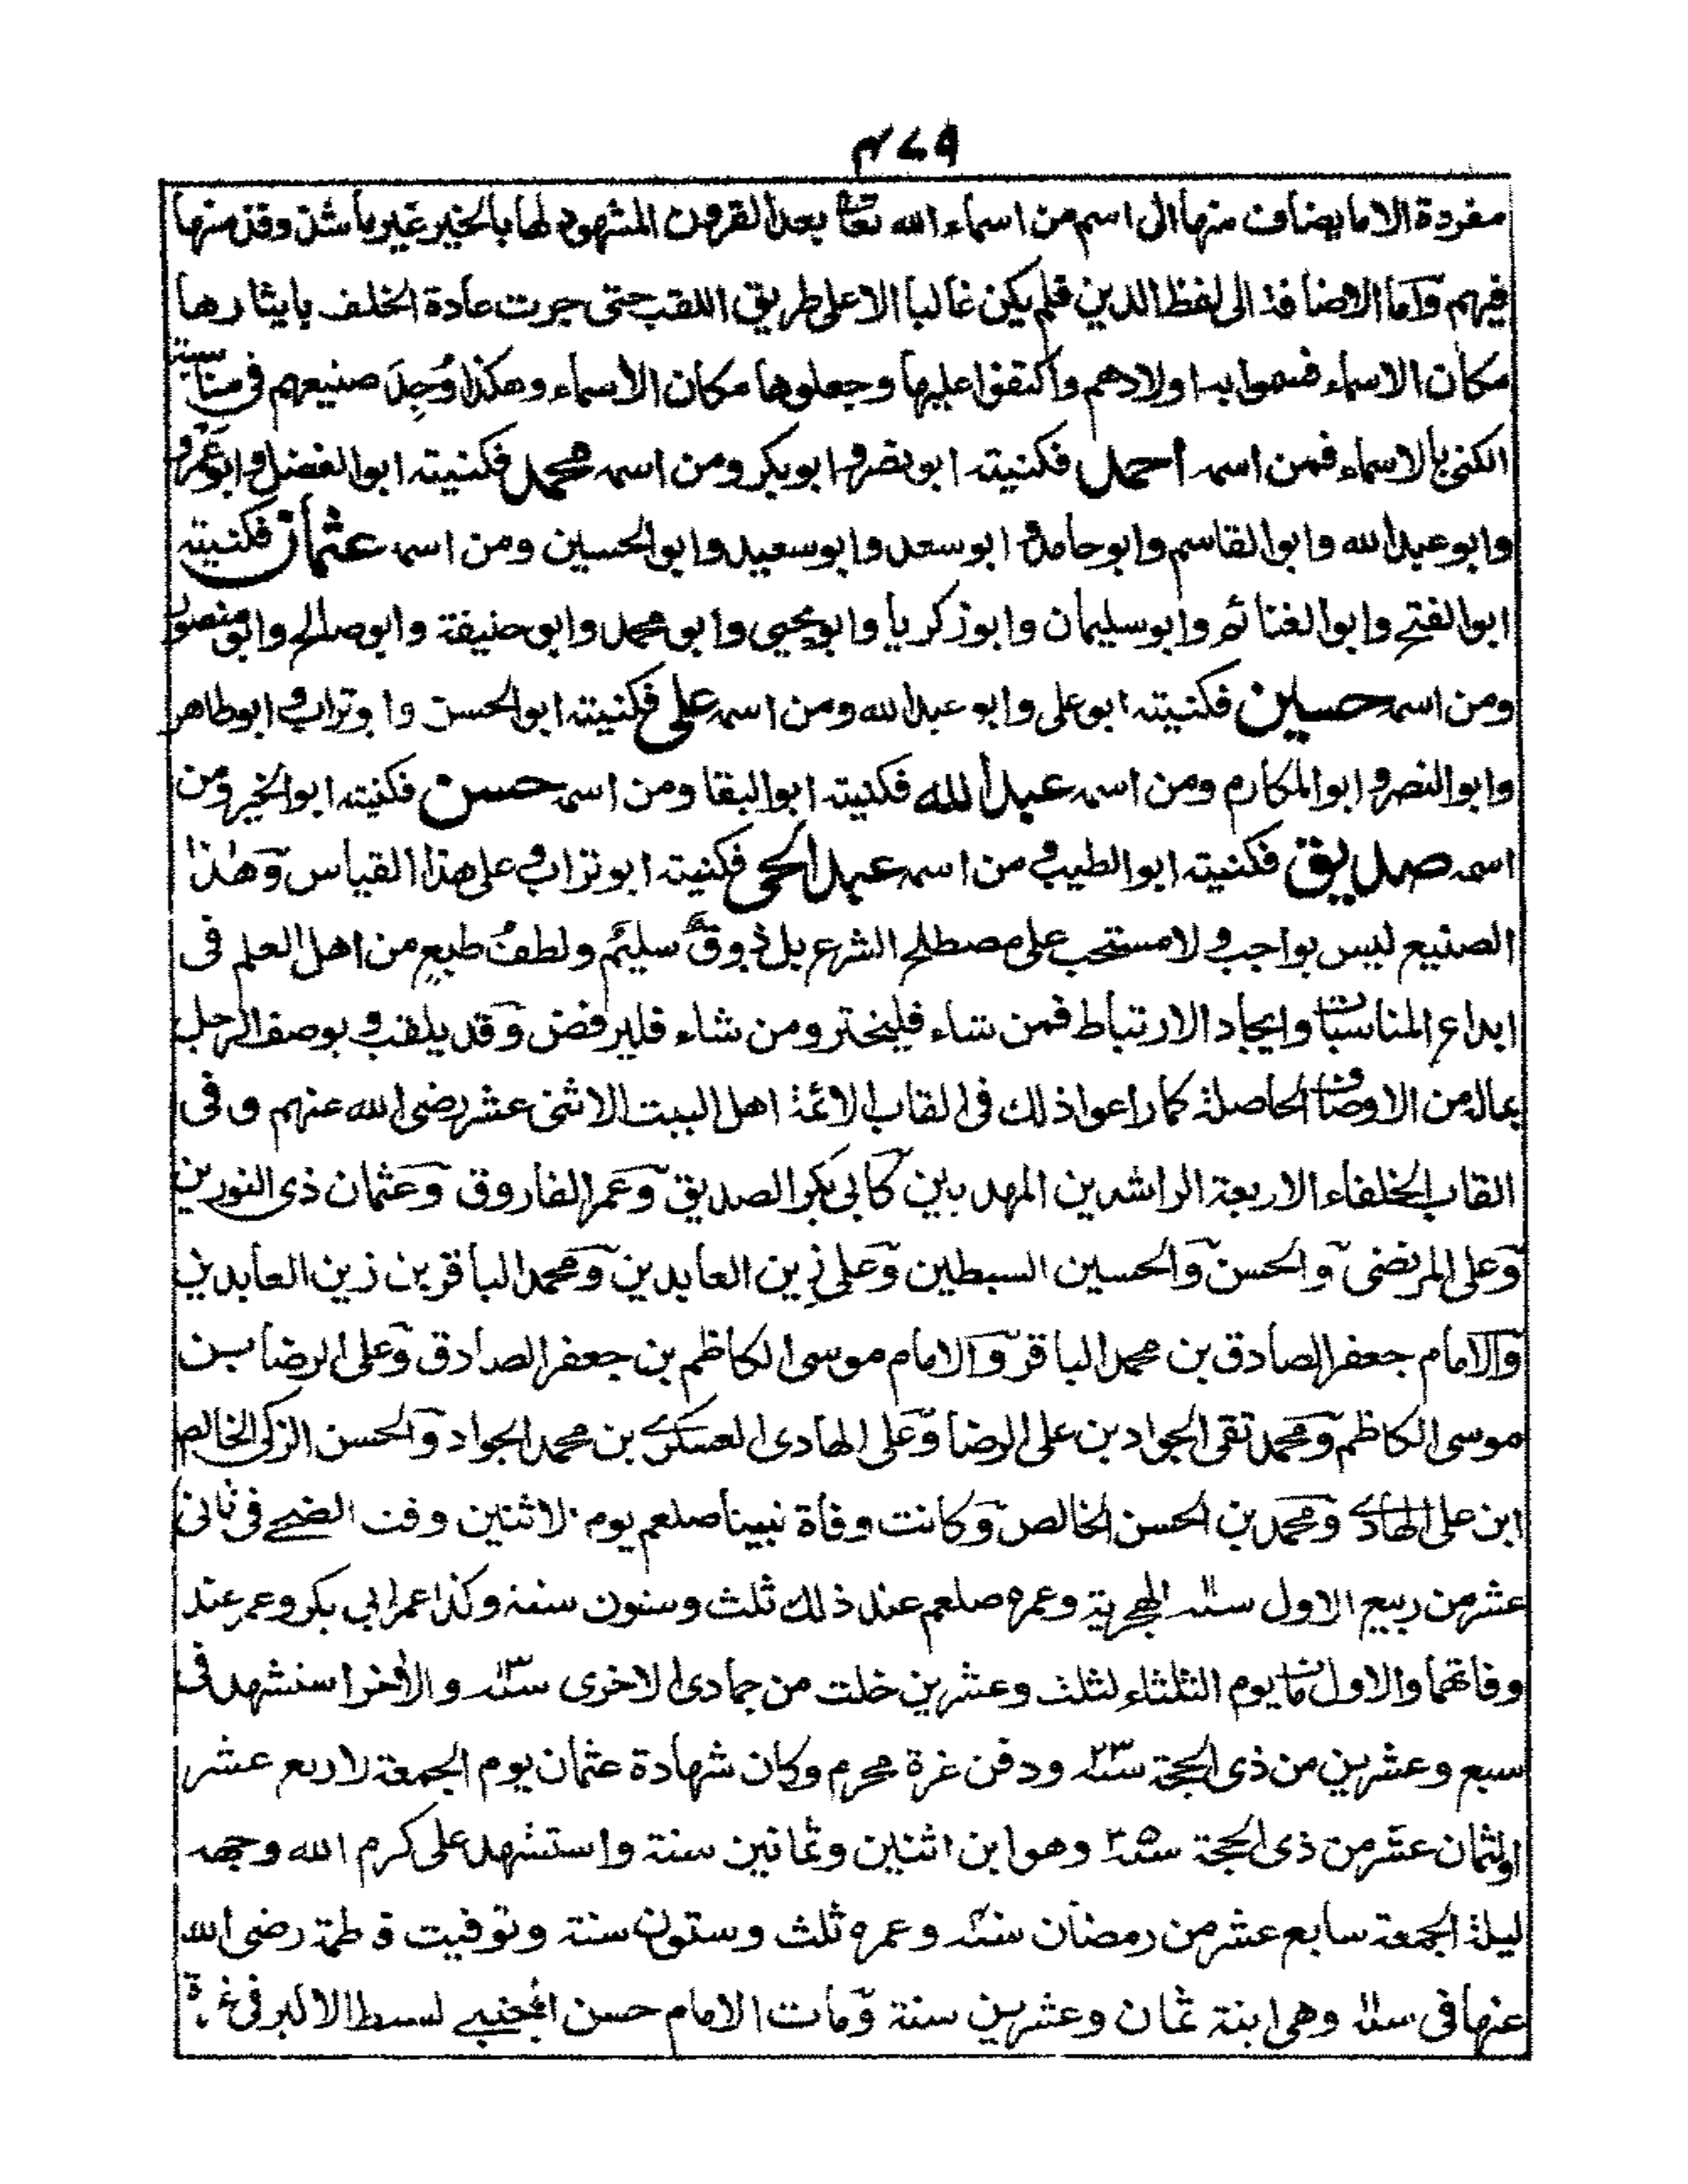 ٤٧٩
مفردة الا ما يضاف منها الى اسم من اسماء الله تعا بعد القرون المشهود لها بالخير غير ما شذ وقذ منها
فيهم وآما الاضافة الى لفظ الدين فلم يكن غالبا الا على طريق اللقب حتى جرت عادة الخلف بايثارها
مكان الاسماء فسموا به اولادهم واكتفوا عليها وجعلوها مكان الاسماء وهكذا وُجِدَ صنيعهم فى مناسبة
الكنى بالاسماء فمن اسمه احمد فكنيته ابو نصر وابو بكر ومن اسمه محمد فكنيته ابو الفضل وابو عمرو
وابو عبد الله وابو القاسم وابو حامد و ابو سعد وابو سعيد وابو الحسين ومن اسمه عثمان فكنيته
ابو الفتح وابو الغنائم وابو سليمان وابو زكريا وابو يحيى وابو محمد وابو حنيفة وابو صالح وابو منصور
ومن اسمه حسين فكنيته ابو على وابو عبد الله ومن اسمه على فكنيته ابو الحسن وابو تراب وابو طاهر
وابو النصر وابو المكارم ومن اسمه عبد الله فكنيته ابو البقا ومن اسمه حسن فكنيته ابو الخير ومن
اسمه صديق فكنيته ابو الطيب ومن اسمه عبد الحى فكنيته ابو تراب وعلى هذا القياس وهٰذا
الصنيع ليس بواجب ولا مستحب على مصطلح الشرع بل ذوقٌ سليمٌ ولطفُ طبعٍ من اهل العلم فى
ابداع المناسبات وايجاد الارتباط فمن شاء فليختر ومن شاء فليرفض وقد يلقب ويوصف الرجل
بماله من الاوصاف الحاصلة كما راعوا ذلك فى القاب الائمة اهل البيت الاثنى عشر رضى الله عنهم وفى
القاب الخلفاء الاربعة الراشدين المهديين كابى بكر الصديق وعمر الفاروق وعثمان ذى النورين
وعلى المرتضى والحسن والحسين السبطين وعلى زين العابدين ومحمد الباقر بن زين العابدين
والامام جعفر الصادق بن محمد الباقر والامام موسى الكاظم بن جعفر الصادق وعلى الرضا بن
موسى الكاظم ومحمد تقى الجواد بن على الرضا وعلى الهادى العسكرى بن محمد الجواد والحسن الزكى الخالص
ابن على الهادى ومحمد بن الحسن الخالص وكانت وفاة نبينا صلعم يوم الاثنين وقت الضحى فى ثانى
عشر من ربيع الاول سنة ١١ الهجرية وعمره صلعم عند ذلك ثلث وستون سنة وكذا عمر ابي بكر وعمر عند
وفاتهما والاول مات يوم الثلثاء لثلث وعشرين خلت من جمادى الاخرى سنة ١٣ والاٰخر استشهد فى
سبع وعشرين من ذى الحجة سنة ٢٣ ودفن غرة محرم وكان شهادة عثمان يوم الجمعة لاربع عشر
او لثمان عشر من ذى الحجة سنة ٣٥ وهو ابن اثنين وثمانين سنة واستشهد على كرم الله وجهه
ليلة الجمعة سابع عشر من رمضان سنة ٤٠ وعمره ثلث وستون سنة وتوفيت فاطمة رضى الله
عنها فى سنة ١١ وهى ابنة ثمان وعشرين سنة ومات الامام حسن المجتبى السبط الاكبر فى غرة